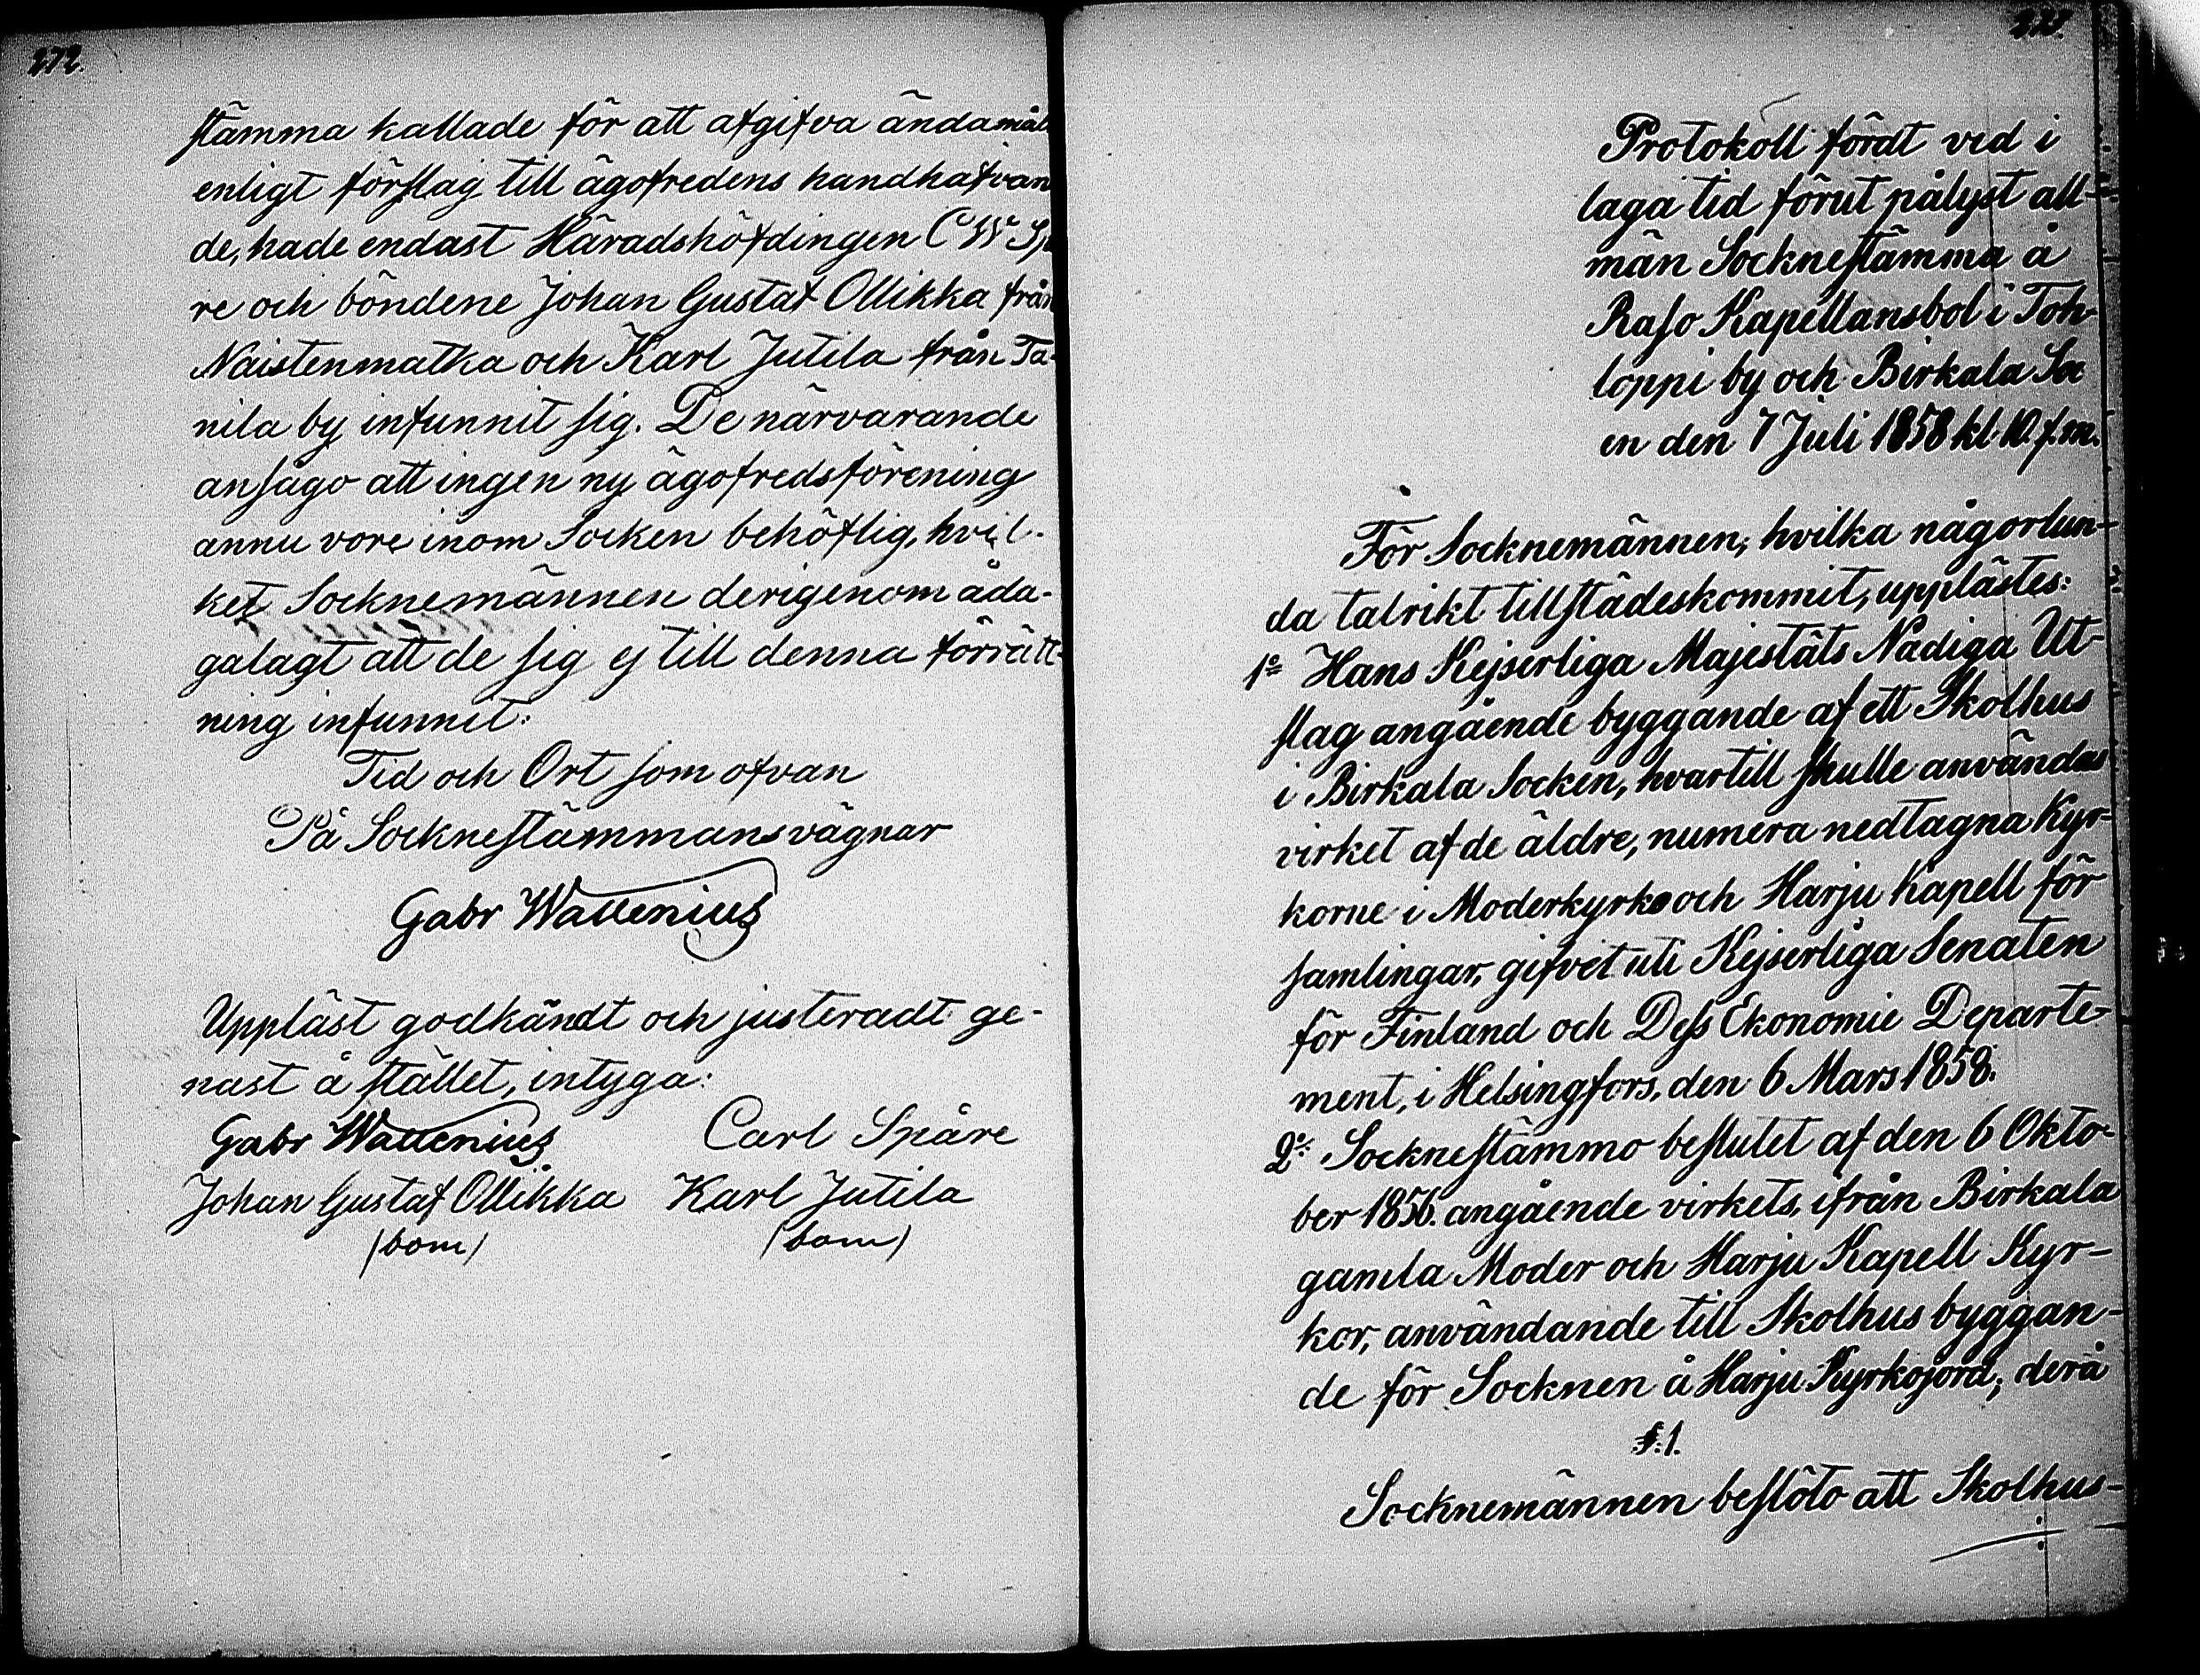 272.
stämma kallade för att afgifva ändamåls
enligt förslag till ägofredens handhafvan
de, hade endast Häradshöfdingen C W Spå
re och bönderne Johan Gustaf Ollikka från
Naistenmatka och Karl Jutila från Ta-
nila by infunnit sig. De närvarande
ansågo att ingen ny ägofredsförening
annu vore inom Socken behöflig, hvil-
ket Socknemännen derigenom åda-
galagt att de sig ej till denna förrätt-
ning infunnit.
Tid och Ort som ofvan
På Socknestämmans vägnar
Gabr Wallenius
Uppläst godkändt och justeradt ge-
nast å stället, intyga:
Gabr Wallenius Carl Spåre
Johan Gustaf Ollikka Karl Jutila
(bom) (bom)
273.
Protokoll fördt vid i
laga tid förut pålyst all-
män Socknestämma å
Raso Kapellansbol i Toh-
loppi by och Birkala Soc
en den 7 Juli 1858 kl. 10. f.m.
För Socknemännen, hvilka någorlun-
da talrikt tillstädeskommit, upplästes:
1o Hans Kejserliga Majestäts Nådiga Ut-
slag angående byggande af ett Skolhus
i Birkala Socken, hvartill skulle användas
virket af de äldre, numera nedtagna Kyr-
korne i Moderkyrko och Harju Kapell för
samlingar, gifvet uti Kejserliga Senaten
för Finland och Dess Ekonomie Departe-
ment, i Helsingfors, den 6 Mars 1858.
2o Socknestämmo beslutet af den 6 Okto-
ber 1856. angående virkets, ifrån Birkala
gamla Moder och Harju Kapell Kyr-
kor, användande till Skolhus byggan-
de för Socknen å Harju Kyrkojord; derå
§. 1.
Socknemännen beslöto att Skolhus-